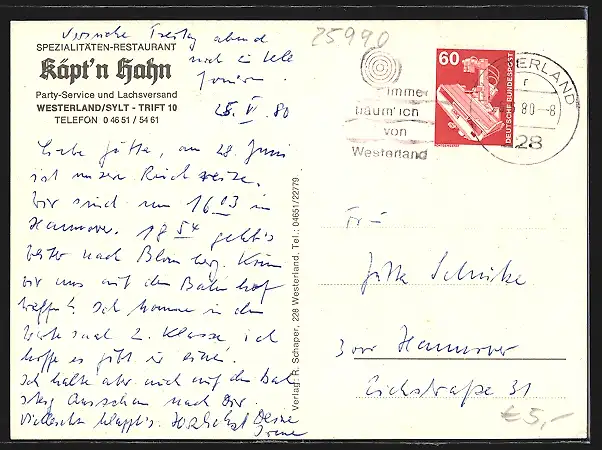 Versuche Freitag abend
noch ein Tele
25990
SPEZIALITÄTEN-RESTAURANT
Käpt'n Hahn
Party-Service und Lachsversand
WESTERLAND/SYLT - TRIFT 10
TELEFON 0 46 51 / 54 61
25. VI. 80
60
DEUTSCHE BUNDESPOST
WESTERLAND
80 - 8
228
immer
träum' ich
von
Westerland
Liebe Jutta, am 28. Juni
ist unsere Rückreise.
Wir sind um 16 03 in
Hannover. 18 54 geht's
weiter nach Blomberg. Könn
wir uns auf dem Bahnhof
treffen? Ich komme in den
Wartesaal 2. Klasse, ich
hoffe es gibt ihn
Ich halte aber auch auf dem Bahn
steig Ausschau nach Dir.
Vielleicht klappt's. Herzlichst Deine
Irene
Verlag: R. Schaper, 228 Westerland, Tel.: 04651/22779
Frau
Jutta
3000 Hannover
Eichstraße 31
€ 5,-